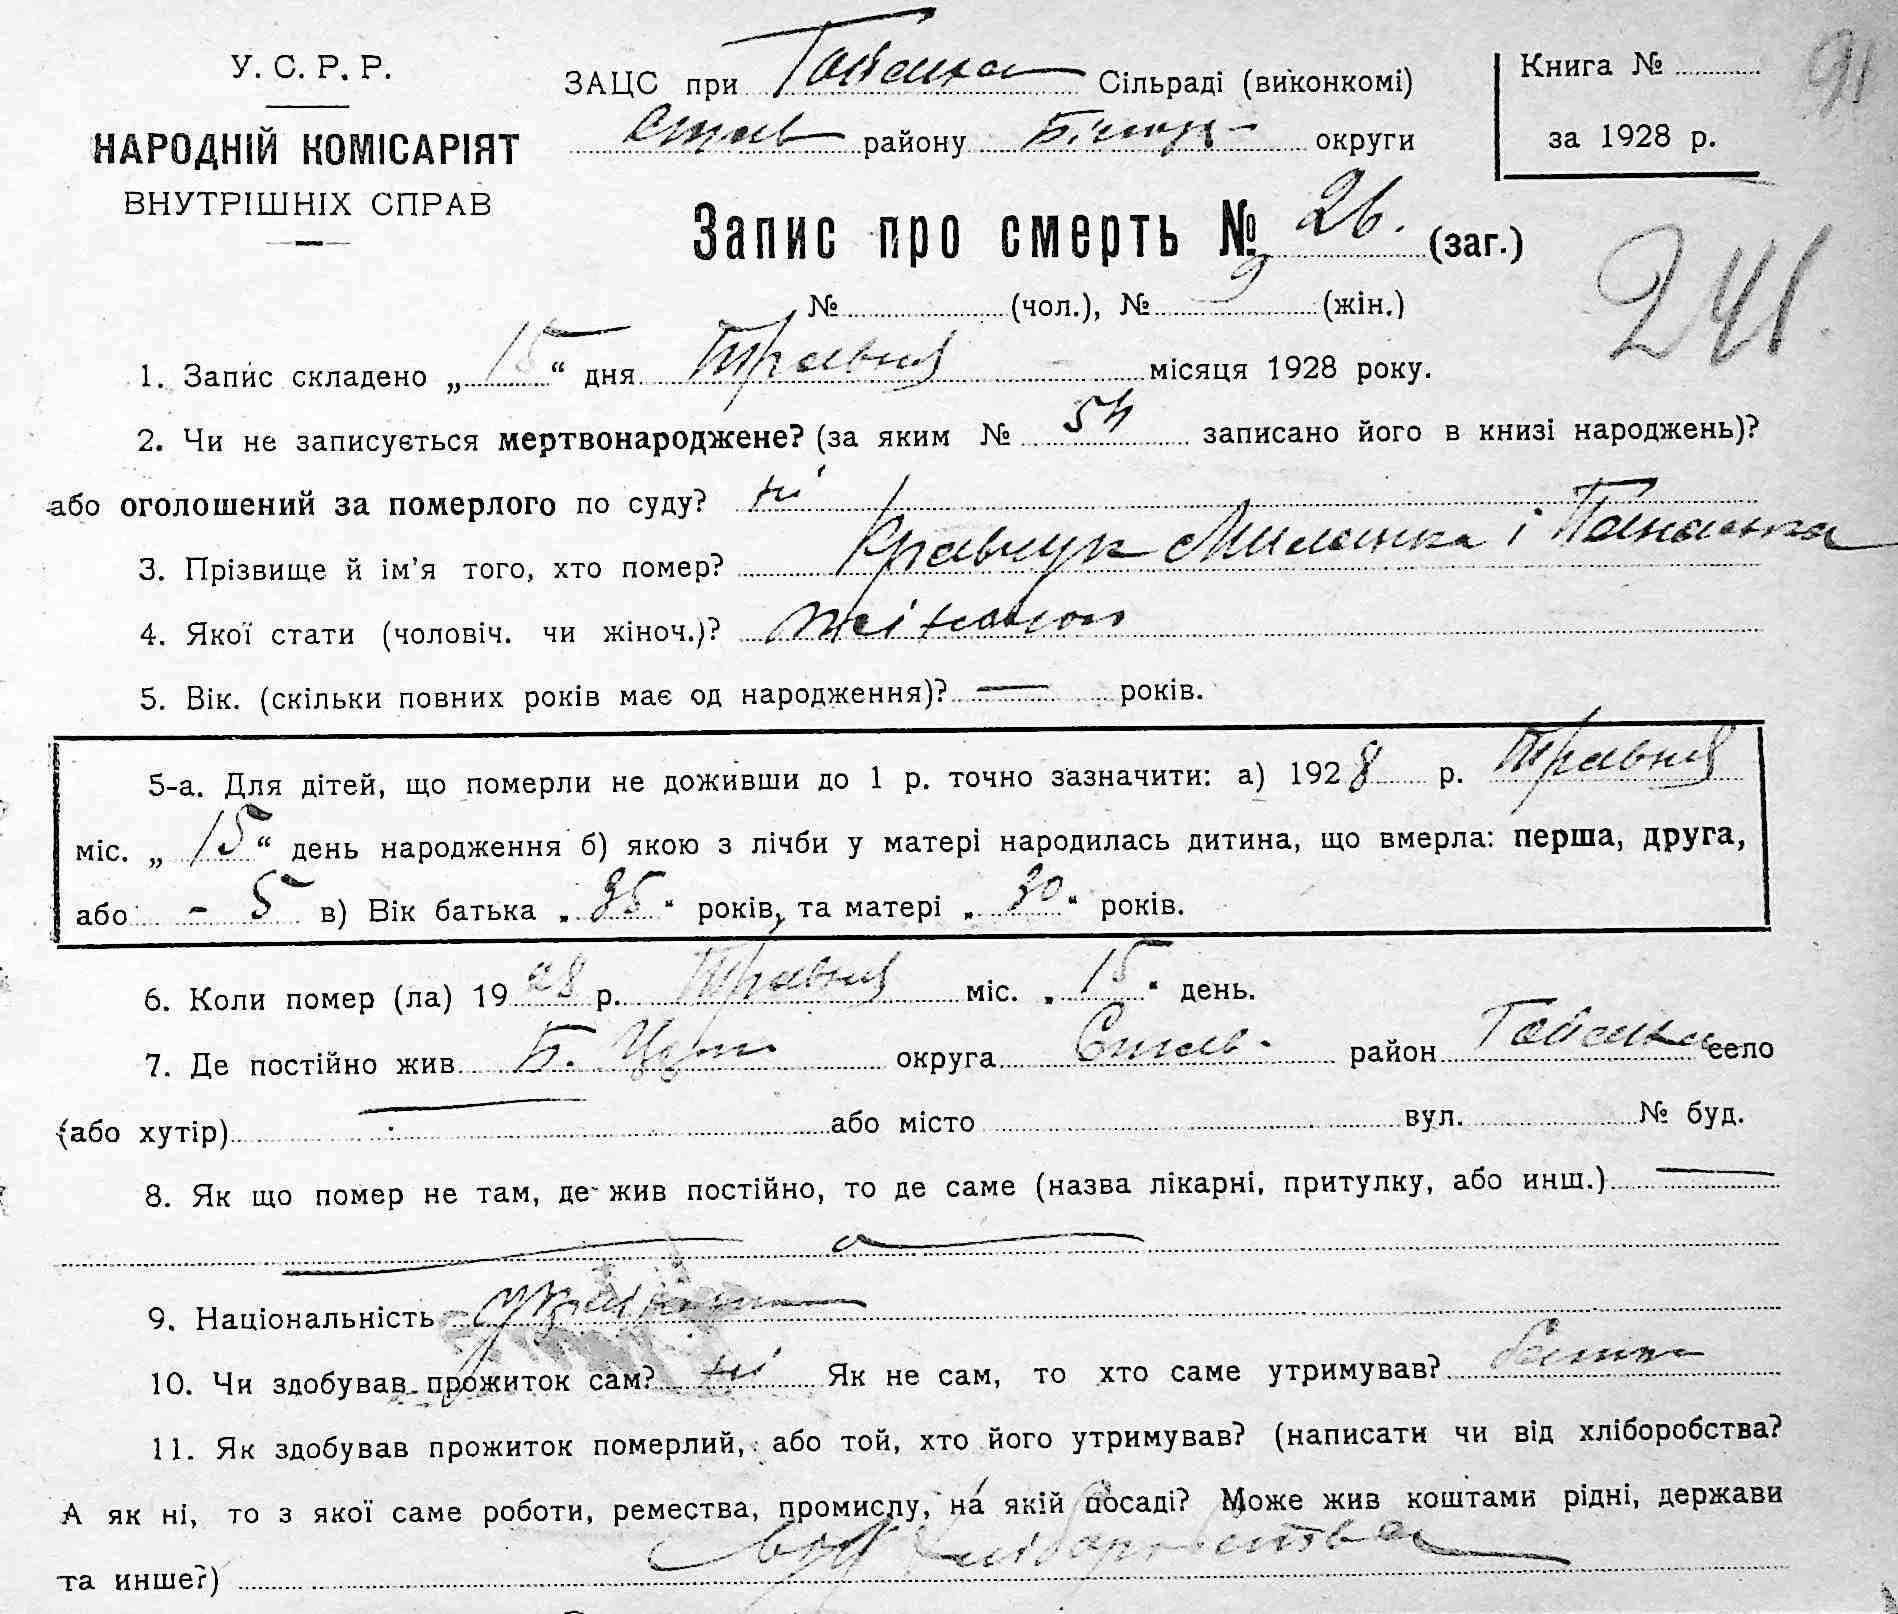 У. С. Р. Р.
НАРОДНІЙ КОМІСАРІЯТ
ВНУТРІШНІХ СПРАВ
ЗАЦС при Сільраді (виконкомі)
району округи
Книга №
за 1928 р.
91
Запис про смерть № 26. (заг.)
241
№ (чол.), № 9 (жін.)
1. Запис складено „ 15 “ дня Травня місяця 1928 року.
2. Чи не записується мертвонароджене? (за яким № 54 записано його в книзі народжень)?
або оголошений за померлого по суду? ні
3. Прізвище й ім’я того, хто помер? Кравчук Миланка і Панаска
4. Якої стати (чоловіч. чи жіноч.)?
5. Вік. (скільки повних років має од народження)? — років.
5-а. Для дітей, що померли не доживши до 1 р. точно зазначити: а) 1928 р. Травня
міс. „ 15 “ день народження б) якою з лічби у матері народилась дитина, що вмерла: перша, друга,
або - 5 в) Вік батька „ 35 “ років, та матері „ 30 “ років.
6. Коли помер (ла) 19 28 р. Травня міс. „ 15 “ день.
7. Де постійно жив Б. Церк округа район село
(або хутір) або місто вул. № буд.
8. Як що помер не там, де жив постійно, то де саме (назва лікарні, притулку, або инш.) —
9. Національність
10. Чи здобував прожиток сам? ні Як не сам, то хто саме утримував? батьки
11. Як здобував прожиток померлий, або той, хто його утримував? (написати чи від хліборобства?
А як ні, то з якої саме роботи, ремества, промислу, на якій посаді? Може жив коштами рідні, держави
та инше?) від хліборобства